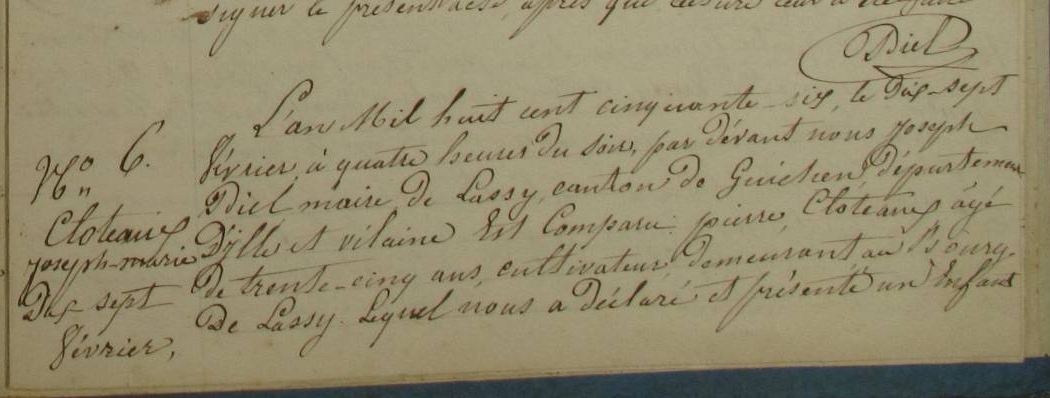 signer le présent acte, après que lecture leur a été faite
Diel
L'an Mil huit cent cinquante-six, le Dix-sept
février, à quatre heures Du soir, par dévant nous Joseph
Diel maire, de Lassy, canton de Guichen, département
D'ylle et vilaine Est Comparu pierre, Cloteaux, âgé
de trente-cinq ans, cultivateur, demeurant au Bourg
De Lassy. Lequel nous a déclaré et présenté un Enfant
No 6.
Cloteaux
Joseph-marie
Dix-sept
février,